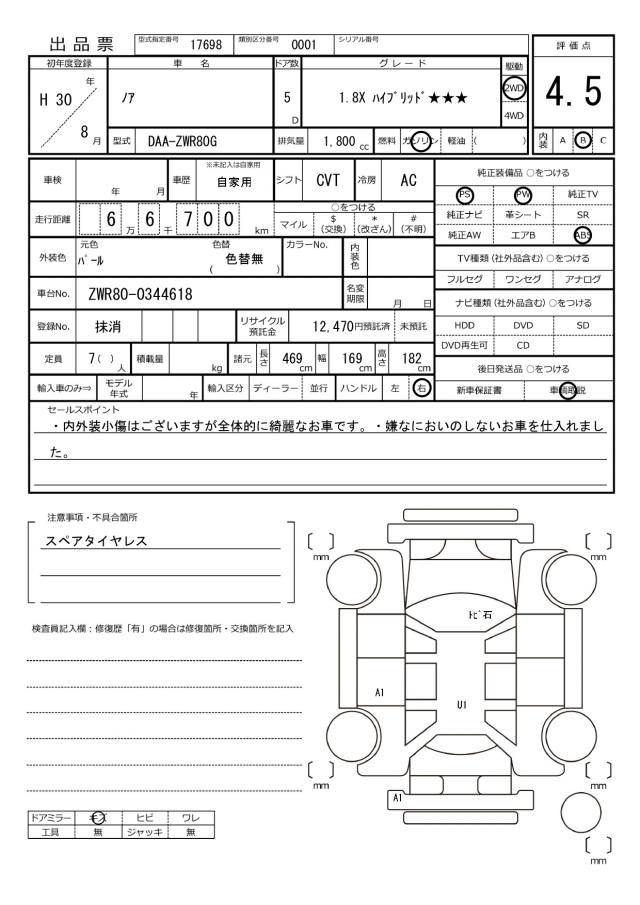 出品票 型式指定番号 17698 類別区分番号 0001 シリアル番号
評価点
4.5
初年度登録 車名 ドア数 グレード 駆動
H 30 年 8 月 ノア 5 D 1.8X ハイブリッド★★★ 2WD 4WD
型式 DAA-ZWR80G 排気量 1,800 cc 燃料 ガソリン 軽油 ( ) 内装 A B C
車検 年 月 車歴 ※未記入は自家用 自家用 シフト CVT 冷房 AC
純正装備品 ○をつける
PS PW 純正TV
純正ナビ 革シート SR
純正AW エアB ABS
走行距離 6 万 6 千 7 0 0 km ○をつける
マイル $(交換) *(改ざん) #(不明)
外装色 元色 パール 色替 ( 色替無 ) カラーNo. 内装色
TV種類(社外品含む) ○をつける
フルセグ ワンセグ アナログ
車台No. ZWR80-0344618 名変期限 月 日
ナビ種類(社外品含む) ○をつける
HDD DVD SD
DVD再生可 CD
登録No. 抹消 リサイクル預託金 12,470円預託済 未預託
定員 7( ) 人 積載量 kg 諸元 長さ 469 cm 幅 169 cm 高さ 182 cm
後日発送品 ○をつける
新車保証書 車輌取説
輸入車のみ⇒ モデル年式 年 輸入区分 ディーラー 並行 ハンドル 左 右
セールスポイント
・内外装小傷はございますが全体的に綺麗なお車です。・嫌なにおいのしないお車を仕入れまし
た。
注意事項・不具合箇所
スペアタイヤレス
検査員記入欄：修復歴「有」の場合は修復箇所・交換箇所を記入
〔 〕mm
〔 〕mm
トビ石
A1
U1
〔 〕mm
〔 〕mm
A1
〔 〕mm
ドアミラー キズ ヒビ ワレ
工具 無 ジャッキ 無